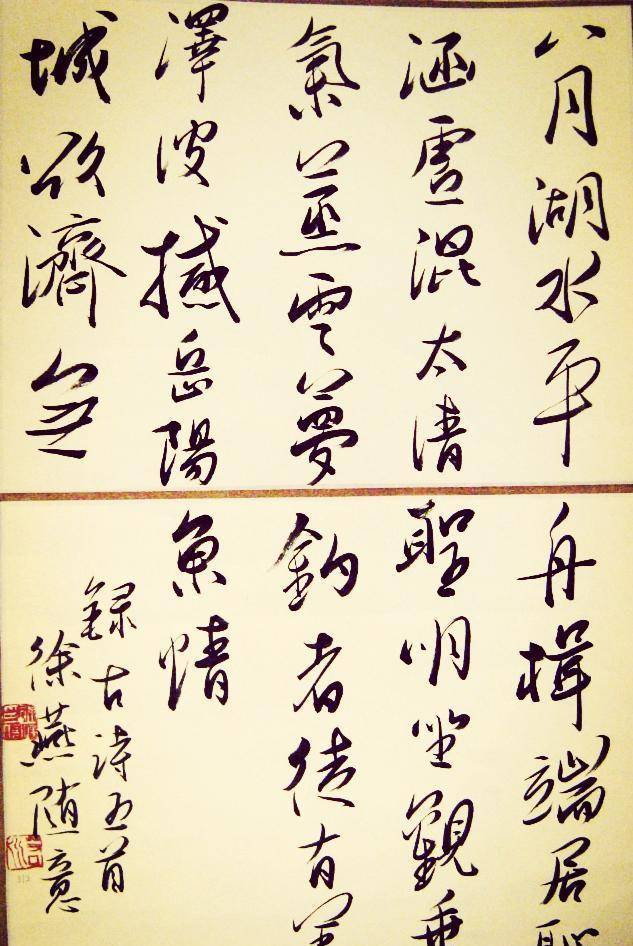 八月湖水平
涵虚混太清
氣蒸雲夢
澤波撼岳陽
城欲濟無
舟楫端居
聖明坐觀垂
釣者徒有
魚情
録古詩五首
徐燕随意